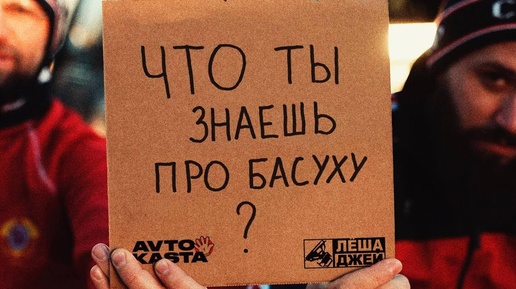 ЧТО ТЫ
ЗНАЕШЬ
ПРО БАСУХУ
?
AVTO
KASTA
ЛЕША
ДЖЕЙ